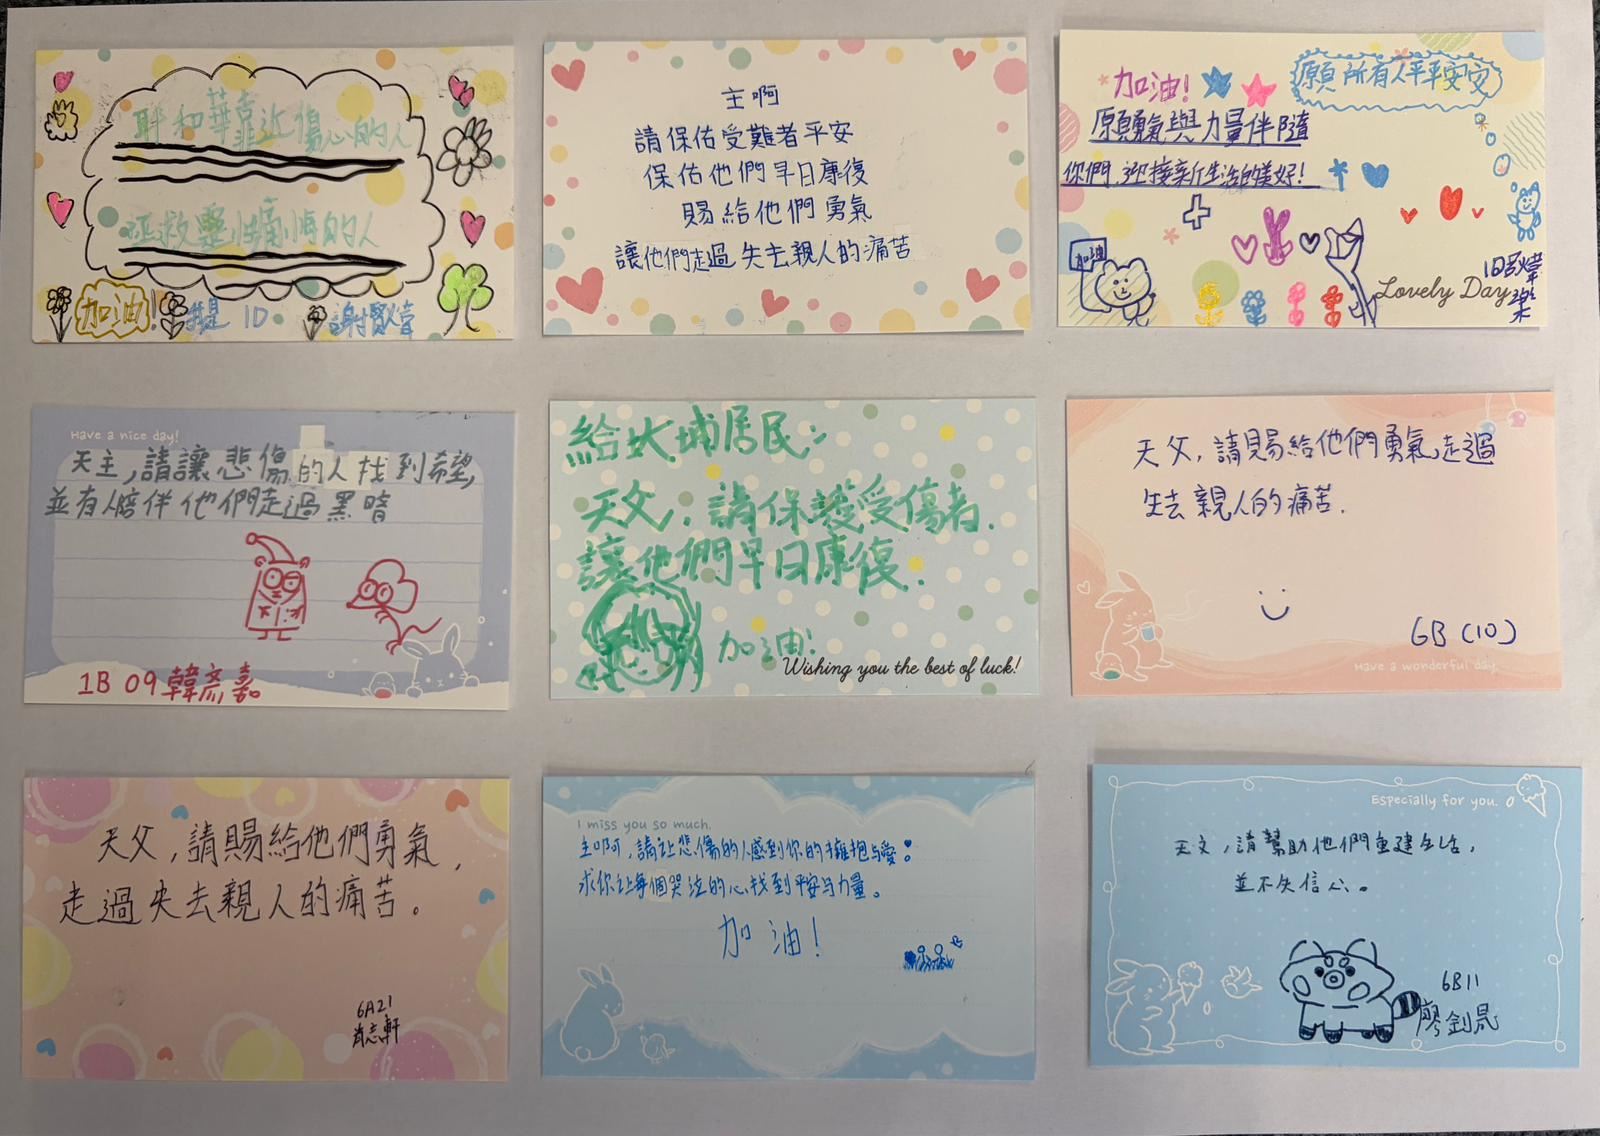 耶和華靠近傷心的人
拯救靈性痛悔的人
加油!
我是 10 謝賢燁
主啊
請保佑受難者平安
保佑他們早日康復
賜給他們勇氣
讓他們走過失去親人的痛苦
加油!
願所有人平平安安
願勇氣與力量伴隨
你們,迎接新生活的美好!
加油
Lovely Day
Have a nice day!
天主,請讓悲傷的人找到希望,
並有人陪伴他們走過黑暗
1B 09 韓彥嘉
給大埔居民:
天父,請保護受傷者.
讓他們早日康復.
加油!
Wishing you the best of luck!
天父,請賜給他們勇氣,走過
失去親人的痛苦.
6B (10)
Have a wonderful day
天父,請賜給他們勇氣,
走過失去親人的痛苦。
6A21
肖志軒
I miss you so much.
主啊,請让悲傷的人感到你的擁抱与愛:
求你让每個哭泣的心找到平安与力量。
加油!
Especially for you.
天父,請幫助他們重建生活,
並不失信心。
6B11
廖劍晟